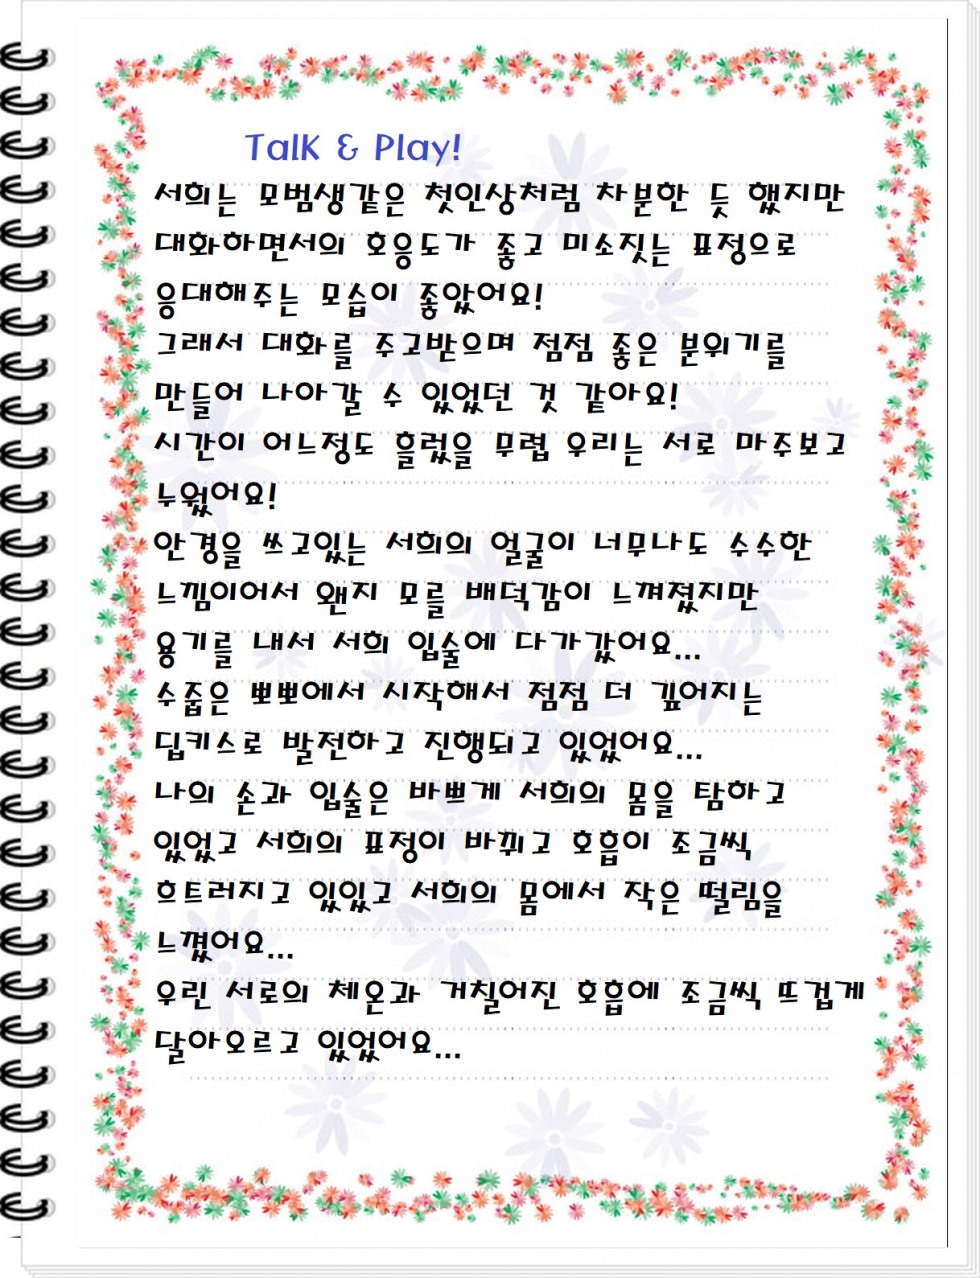 Talk & Play!
서희는 모범생같은 첫인상처럼 차분한 듯 했지만
대화하면서의 호응도가 좋고 미소짓는 표정으로
응대해주는 모습이 좋았어요!
그래서 대화를 주고받으며 점점 좋은 분위기를
만들어 나아갈 수 있었던 것 같아요!
시간이 어느정도 흘렀을 무렵 우리는 서로 마주보고
누웠어요!
안경을 쓰고있는 서희의 얼굴이 너무나도 수수한
느낌이어서 왠지 모를 배덕감이 느껴졌지만
용기를 내서 서희 입술에 다가갔어요...
수줍은 뽀뽀에서 시작해서 점점 더 깊어지는
딥키스로 발전하고 진행되고 있었어요...
나의 손과 입술은 바쁘게 서희의 몸을 탐하고
있었고 서희의 표정이 바뀌고 호흡이 조금씩
흐트러지고 있있고 서희의 몸에서 작은 떨림을
느꼈어요...
우린 서로의 체온과 거칠어진 호흡에 조금씩 뜨겁게
달아오르고 있었어요...